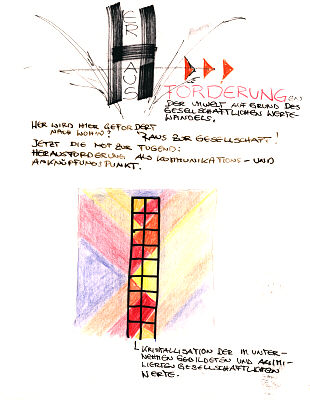 HER
AUS
FORDERUNG(EN)
DER UMWELT AUFGRUND DES
GESELLSCHAFTLICHEN WERTE
WANDELS.
HER WIRD HIER GEFORDERT
NACH WOHIN? RAUS ZUR GESELLSCHAFT!
JETZT DIE NOT ZUR TUGEND:
HERAUSFORDERUNG ALS KOMMUNIKATIONS- UND
ANKNÜPFUNGSPUNKT.
KRISTALLISATION DER IM UNTER-
NEHMEN GEBILDETEN UND
GESELLSCHAFTLICHEN
WERTE.